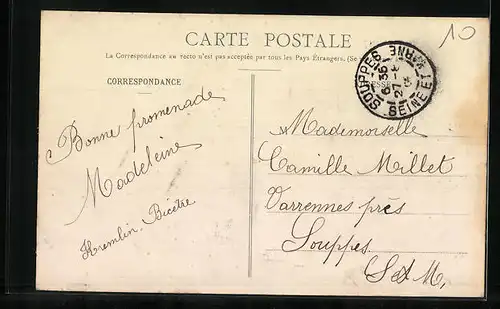 10
CARTE POSTALE
La Correspondance au recto n'est pas acceptée par tous les Pays Étrangers. (Se
CORRESPONDANCE
SOUPPES
SEINE ET MARNE
27
Bonne promenade
Madeleine
Kremlin. Bicêtre
Mademoiselle
Camille Millet
Varrennes près
Souppes
S&M,